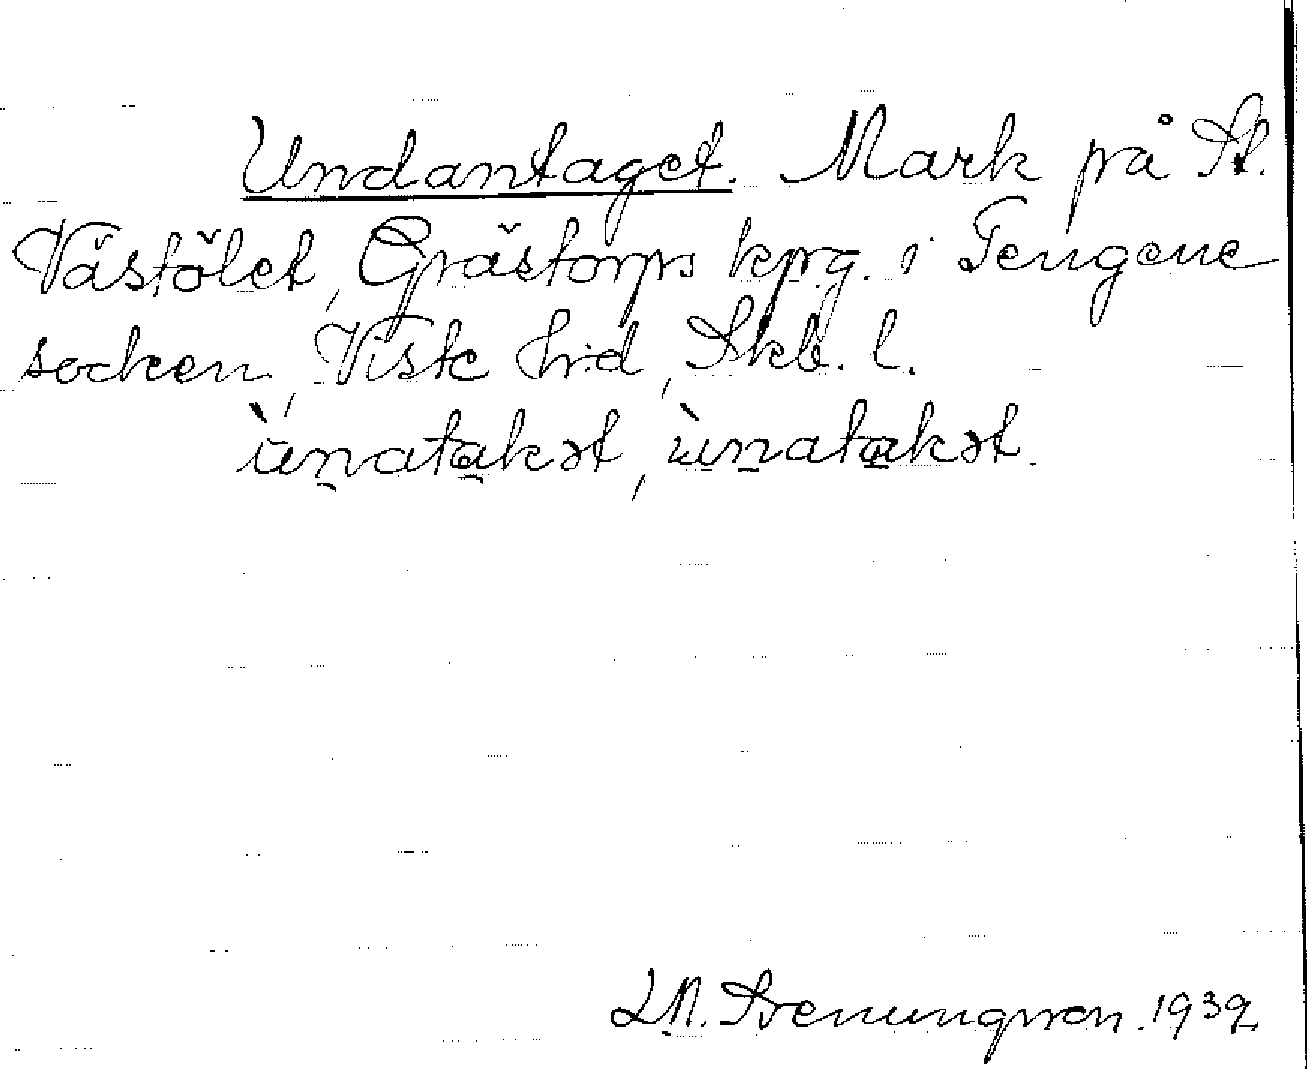 Undantaget. Mark på St.
Västölet, Grästorps kpg. i Tengene
socken, Viste hd, Skb. l.
ùnatakət, ùnatakət.
Svenungsson. 1932